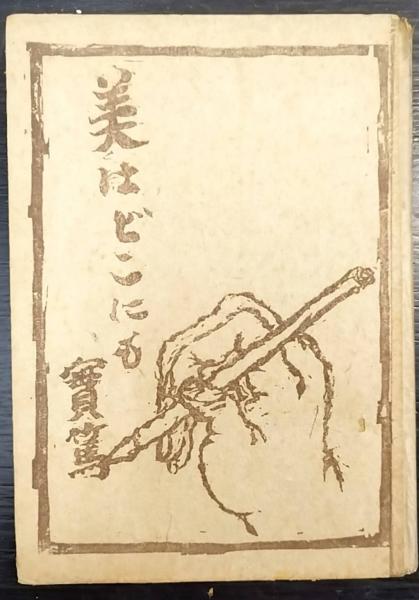 美はどこにも
實篤